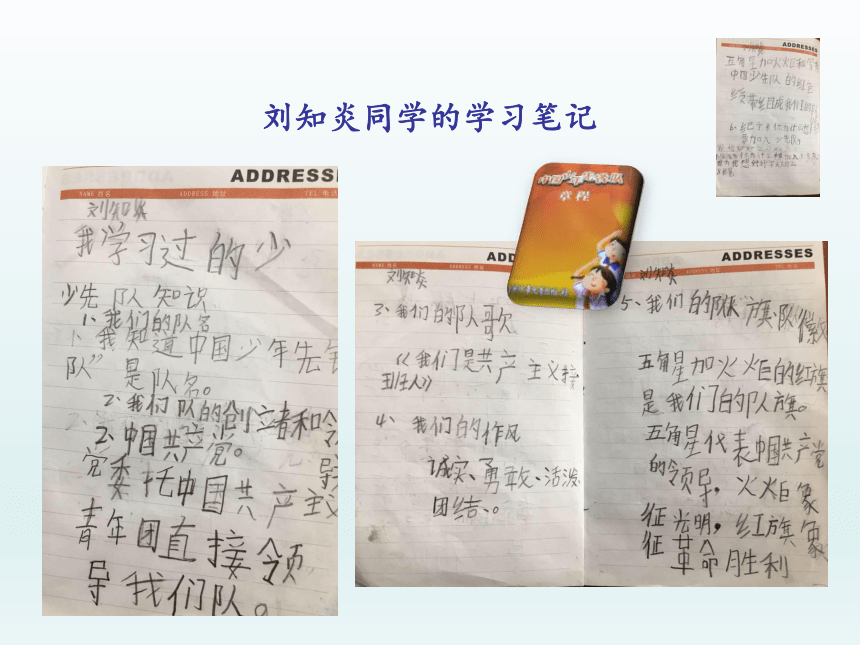 刘知炎同学的学习笔记
ADDRESS
NAME 姓名 ADDRESS 地址 TEL 电话
刘知炎
我学习过的少
少先队知识
1、我们的队名
1、我知道中国少年先锋
队” 是队名。
2、我们队的创立者和领
导
2、中国共产党。
党委托中国共产主义
青年团直接领
导我们队。
中国少年先锋队
章程
ADD
刘知炎
3、我们的队歌
《我们是共产主义接
班人》
4、我们的作风
诚实、勇敢、活泼
团结、。
ADDRESSES
刘知炎
5、我们的队旗、队徽
五角星加火炬的红旗
是我们的队旗。
五角星代表中国共产党
的领导，火炬象
征光明，红旗象
征革命胜利
ADDRESSES
刘知炎
五角星加火炬和写有
中国少先队的红色
绶带组成我们的队